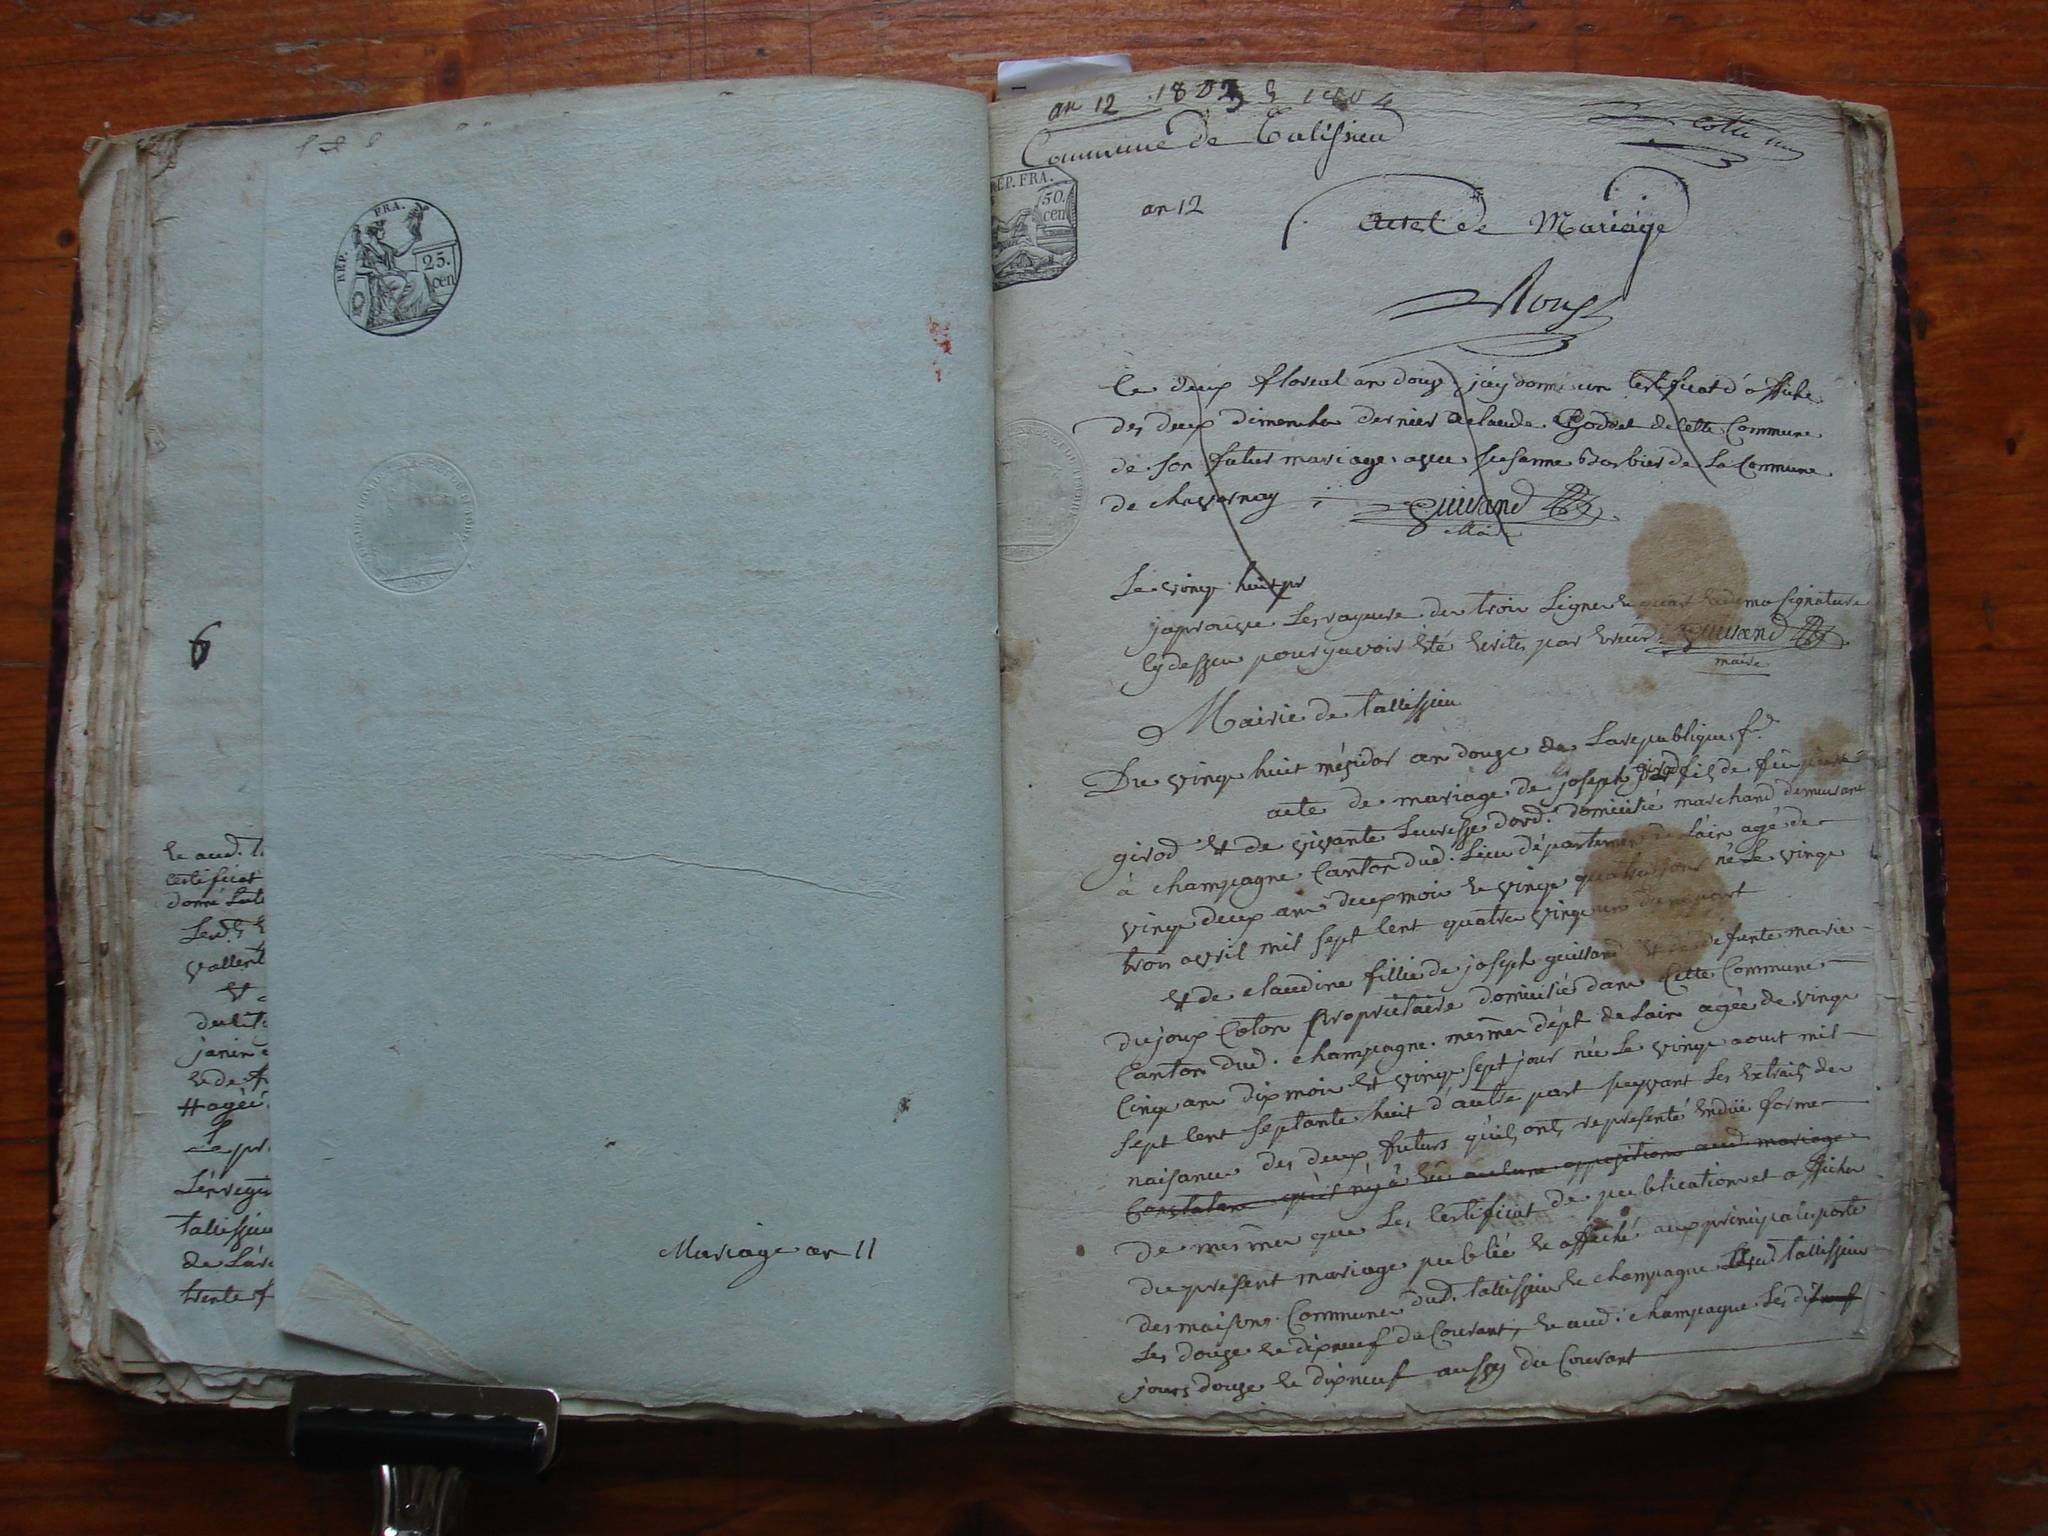 REP. FRA.
25.
cen
6
le aud. t
certificat
donné
vallent
janin
agée
Le pr
tallissieu
trente
Mariage an 11
an 12 1803 à 1804
Commune de Talissieu
REP. FRA.
50.
cen
an 12
Actes de Mariage
Nous
Le deux floreal an douze j'ay donné un certificat d'affiche
des deux dimenche dernier a claude Goddet de cette Commune
de son futur mariage avec susanne Barbier de la Commune
de chavornay Guirand
Maire
Le vingt huit
japrouve les rayure de trois Ligne et de ma signature
cy dessu pour y avoir été écrites par erreur Guirand
maire
Mairie de tallissieu
Du vingt huit méssidor an douze de La republique f.
acte de mariage de joseph girod fils de feu
girod et de vivante domicilié marchand demeurant
à champagne Canton dud. Lieu département de Lain agé de
vingt deux ans deux mois et vingt quatre jours né Le vingt
trois avril mil sept cent quatre vingt un d'une part
et de claudine fillie de joseph guilland et de défunte marie
dujoux Coton propriétaire domicilié dans Cette Commune
Canton dud. champagne mesmes dépt. de Lain agée de vingt
Cinq ans dix mois et vingt sept jour née Le vingt aout mil
sept cent septante huit d'autre part suyvant Les Extraits des
naisance des deux futurs qu'ils ont representé Endüe forme
Constatans qu'il n'y à heu aucune opposition aud. mariage
de mesmes que Les Certificat de publication et affiches
du présent mariage publiée et affiché aux principale porte
des maisons Communes dud. tallissieu et champagne tallissieu
Les douze et dixneuf du Courant, et aud. champagne Les dixneuf
jours douze et dixneuf aussy du Courant